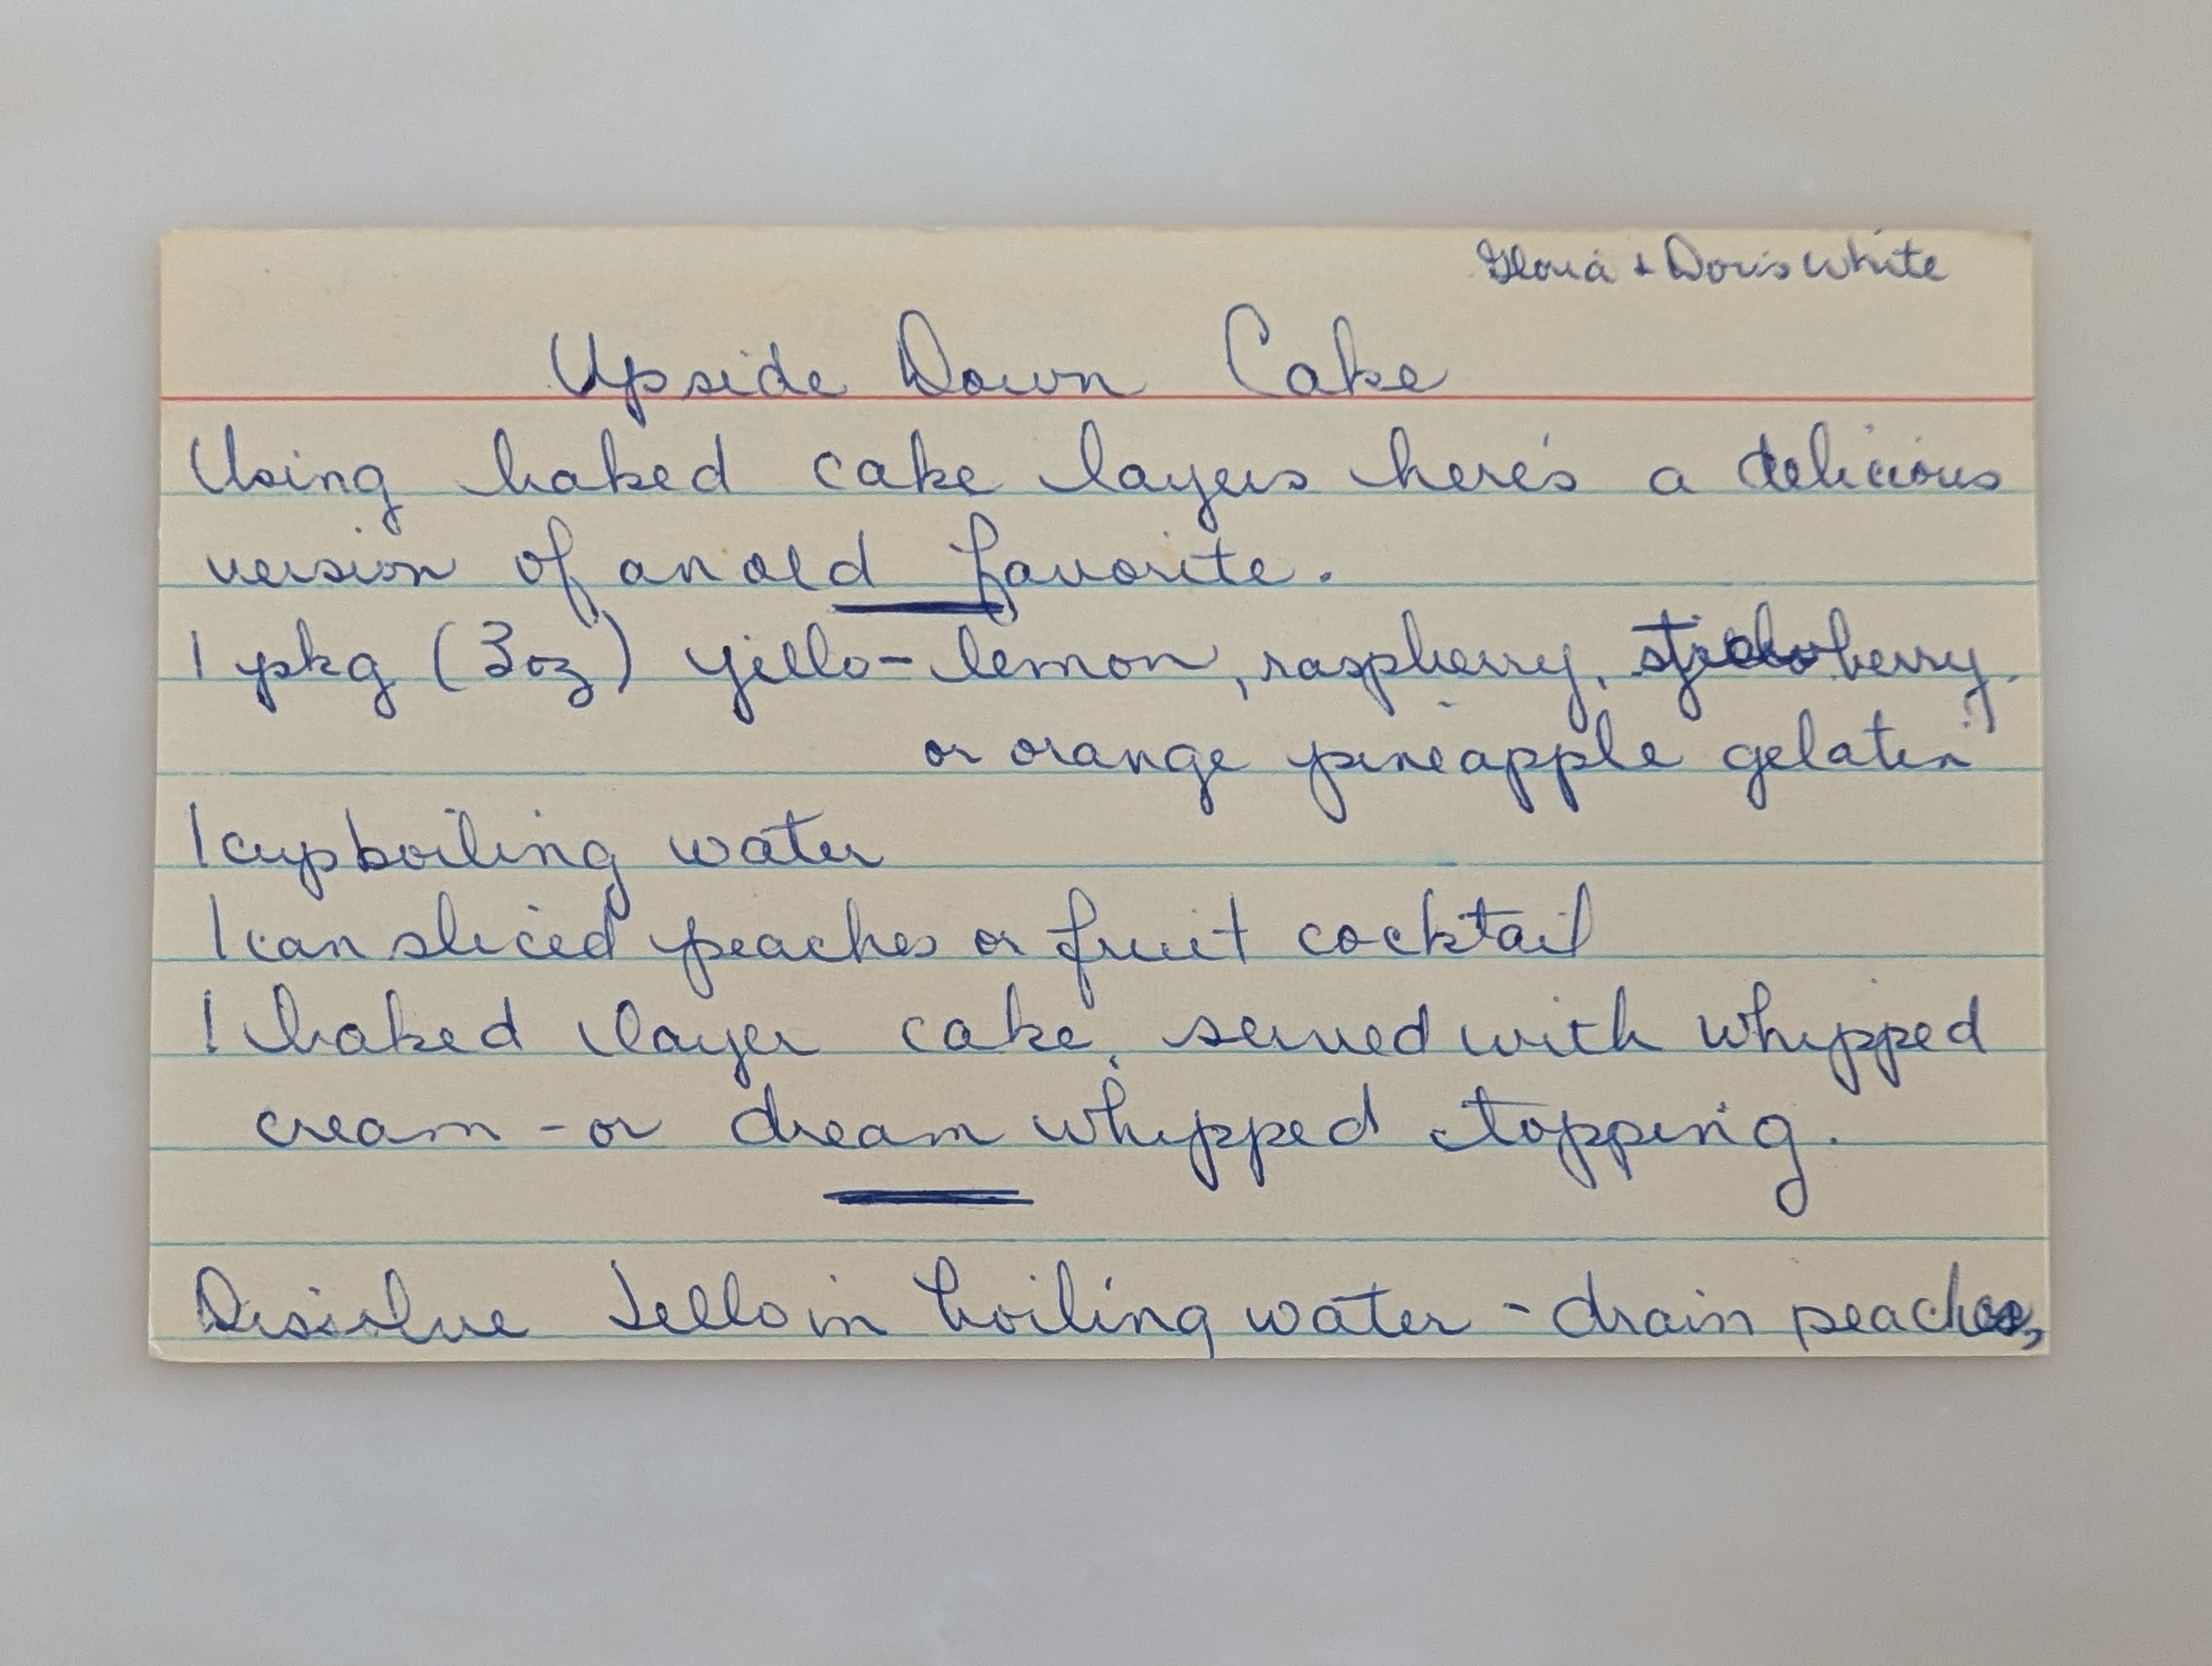 Gloria + Doris White
Upside Down Cake
Using baked cake layers here's a delicious
version of an old favorite.
1 pkg (3oz) yello - lemon, raspberry, strawberry,
or orange pineapple gelatin
1 cup boiling water
1 can sliced peaches or fruit cocktail
1 baked layer cake, served with whipped
cream - or dream whipped topping.
Dissolve Jello in boiling water - drain peaches,